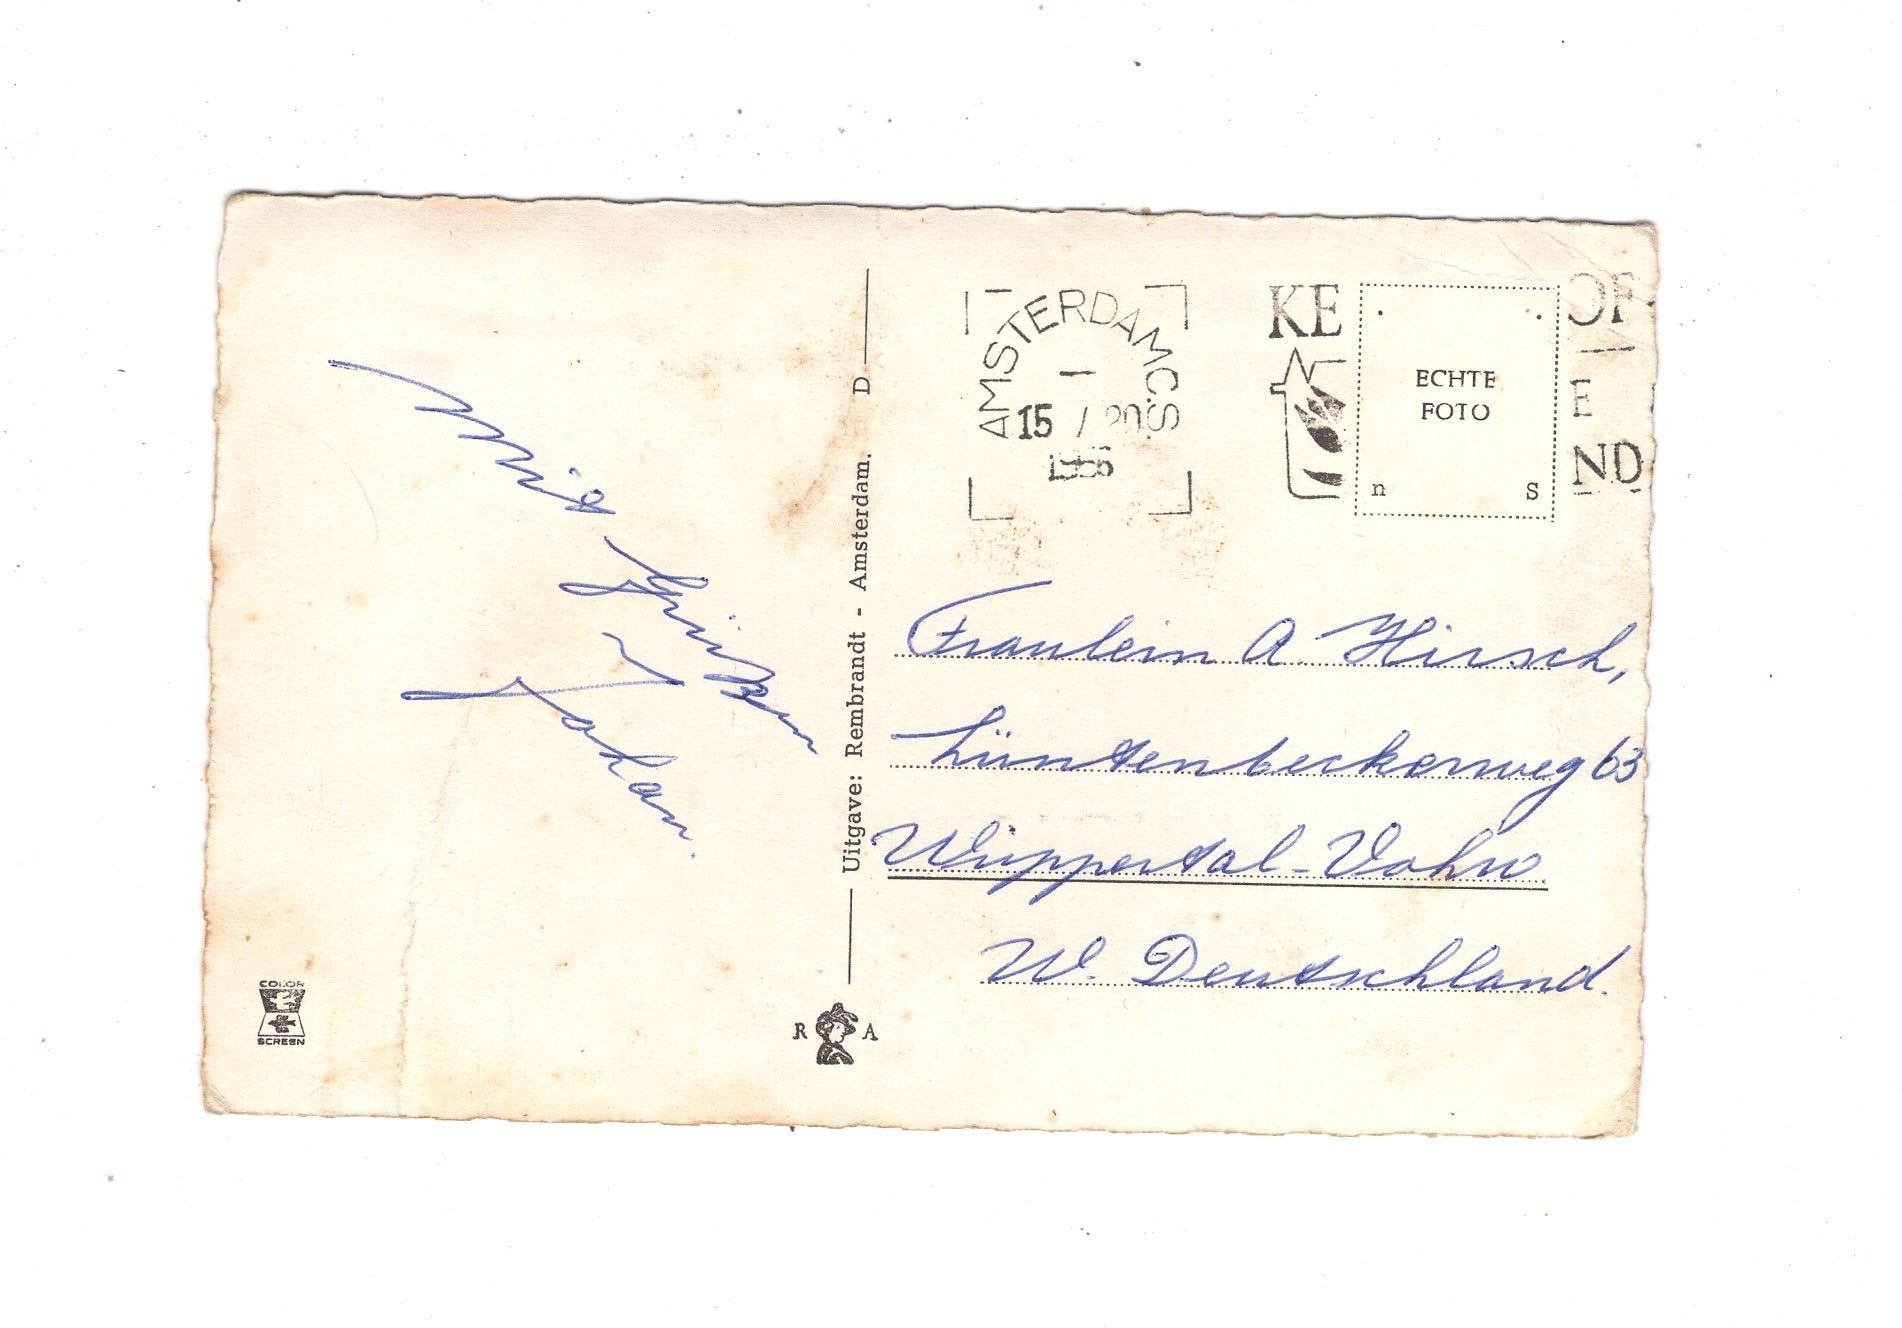 Mit Grüßen
Johan.
COLOR
SCREEN
D
Uitgave: Rembrandt - Amsterdam.
R A
AMSTERDAM C.S.
1
15 / 20
1966
KE
OF
E
ND
ECHTE
FOTO
n S
Fraulein A. Hirsch,
Lüntenbeckerweg 63
Wuppertal-Vohw.
W. Deutschland.